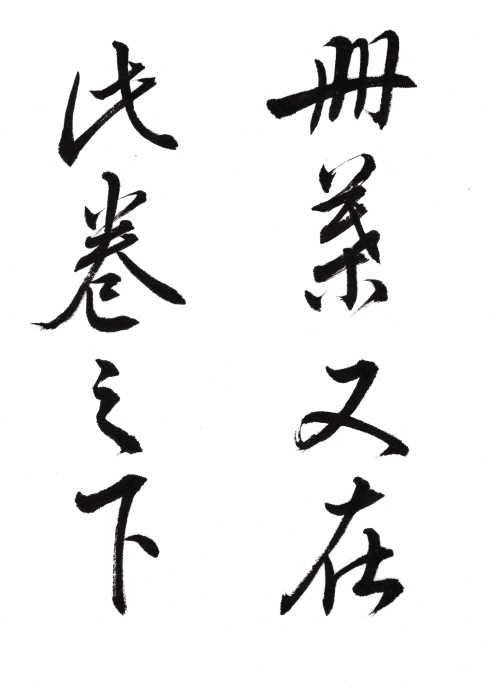 冊葉又在
此卷之下